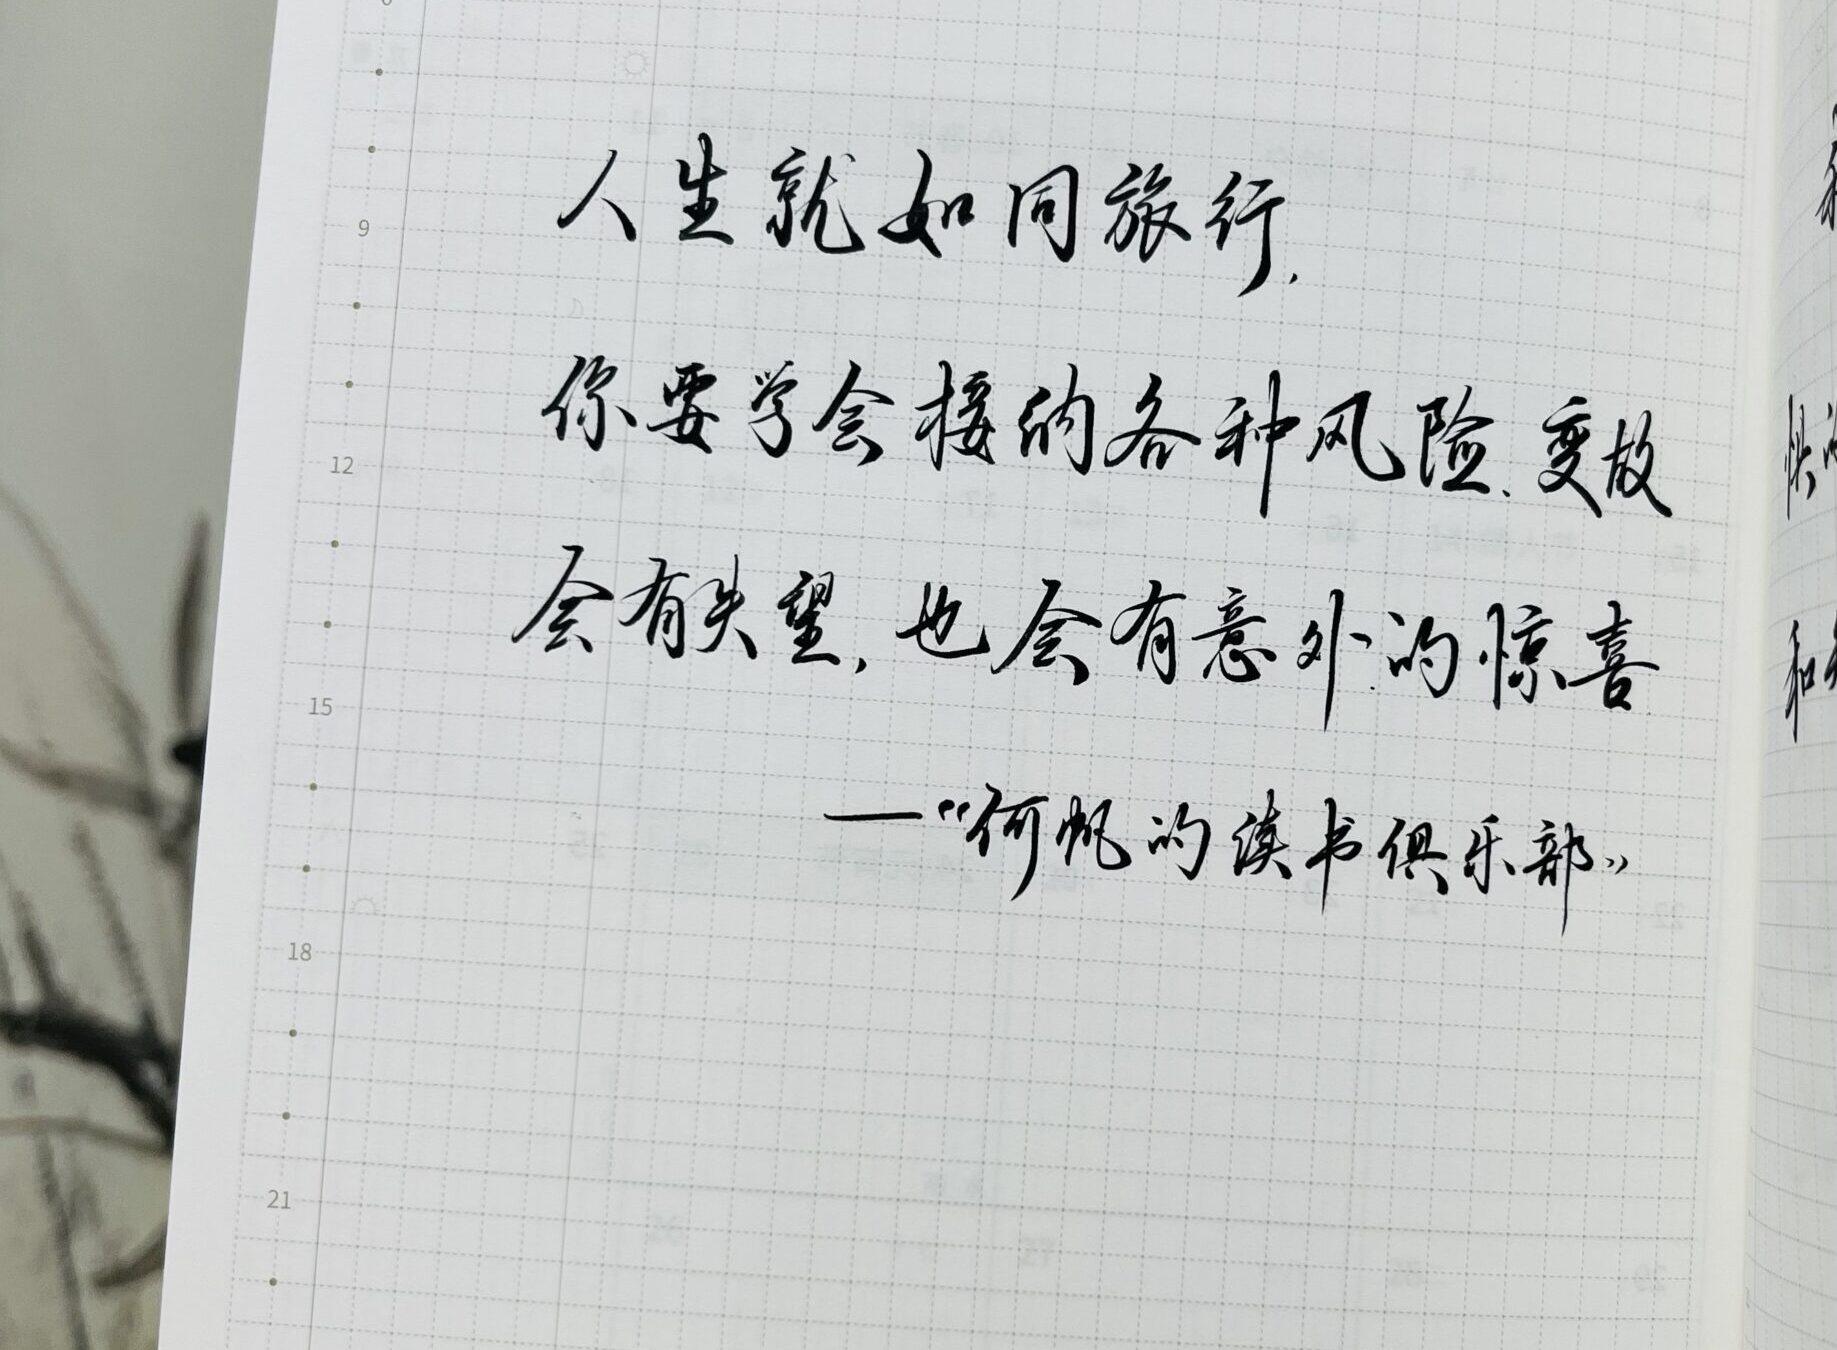 9
人生就如同旅行，
12
你要学会接纳各种风险、变故
会有失望，也会有意外的惊喜
15
—“何帆的读书俱乐部”
18
21
和